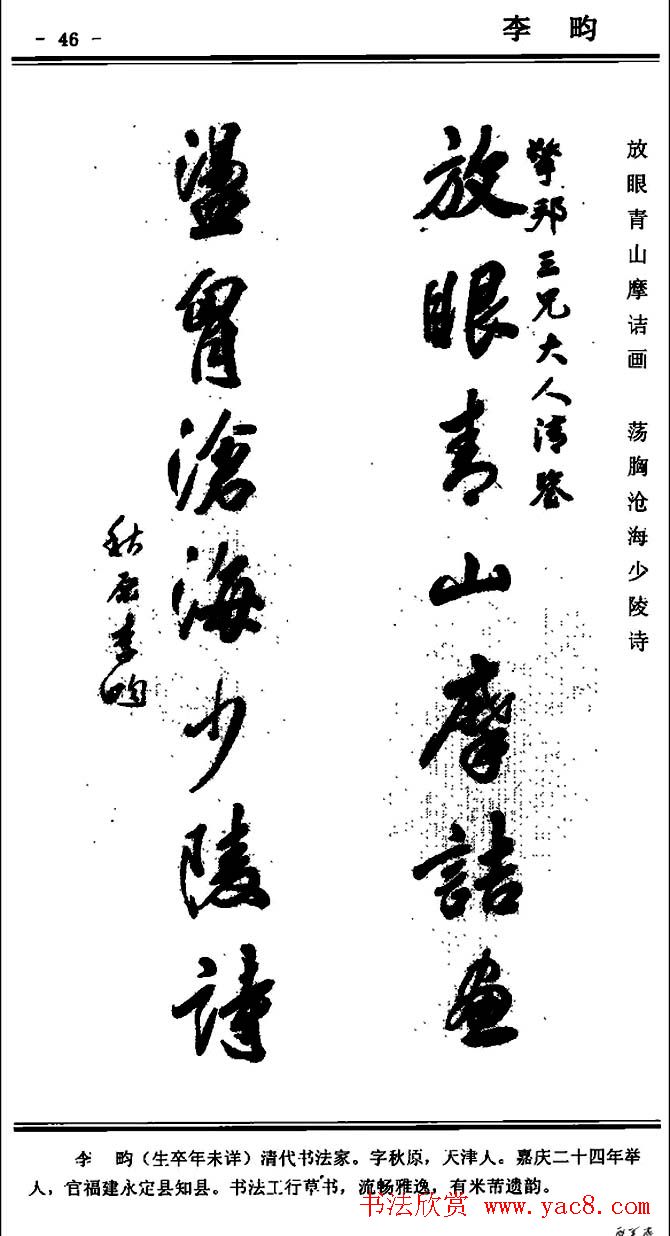 - 46 -
李 畇
放眼青山摩诘画 荡胸沧海少陵诗
擎邦三兄大人清鉴
放眼青山摩詰畫
盪胷滄海少陵詩
秋原李畇
李 畇（生卒年未详）清代书法家。字秋原，天津人。嘉庆二十四年举
人，官福建永定县知县。书法工行草书，流畅雅逸，有米芾遗韵。
书法欣赏 www.yac8.com